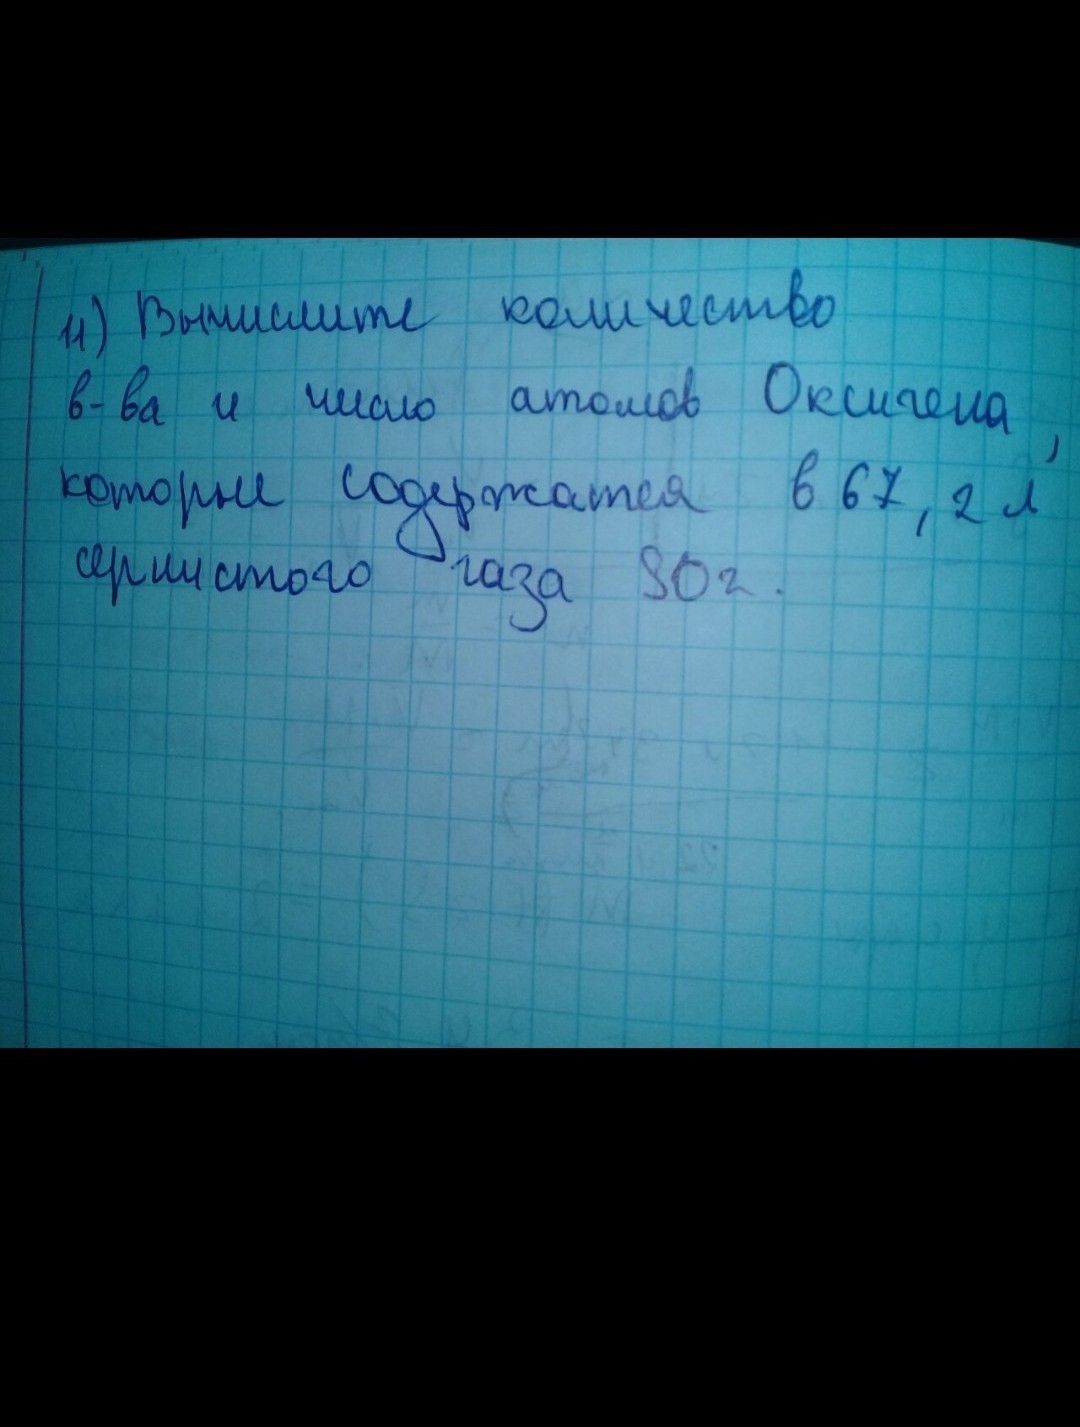 11) Вычислите количество
в-ва и число атомов Оксигена,
которые содержатся в 67,2 л
сернистого газа SO2.